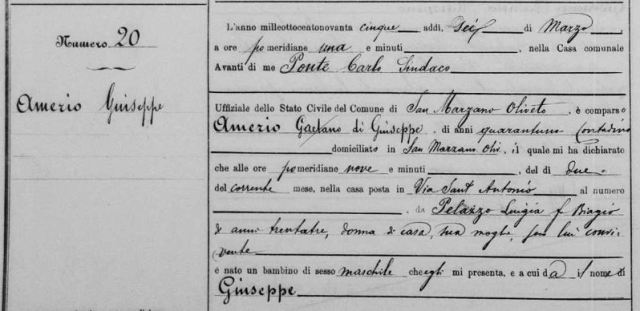 Numero 20
Amerio Giuseppe
L'anno milleottocentonovanta cinque addì, Sei di Marzo
a ore pomeridiane una e minuti, nella Casa comunale
Avanti di me Ponte Carlo Sindaco
Uffiziale dello Stato Civile del Comune di San Marzano Oliveto, è comparso
Amerio Gaetano di Giuseppe, di anni quarantuno Contadino
domiciliato in San Marzano Oliv, il quale mi ha dichiarato
che alle ore pomeridiane nove e minuti, del dì due
del corrente mese, nella casa posta in Via Sant'Antonio al numero
, da Pelazzo Luigia f. Biagio
di anni trentatre, donna di casa, sua moglie, con lui convi-
vente
è nato un bambino di sesso maschile che egli mi presenta, e a cui dà il nome di
Giuseppe